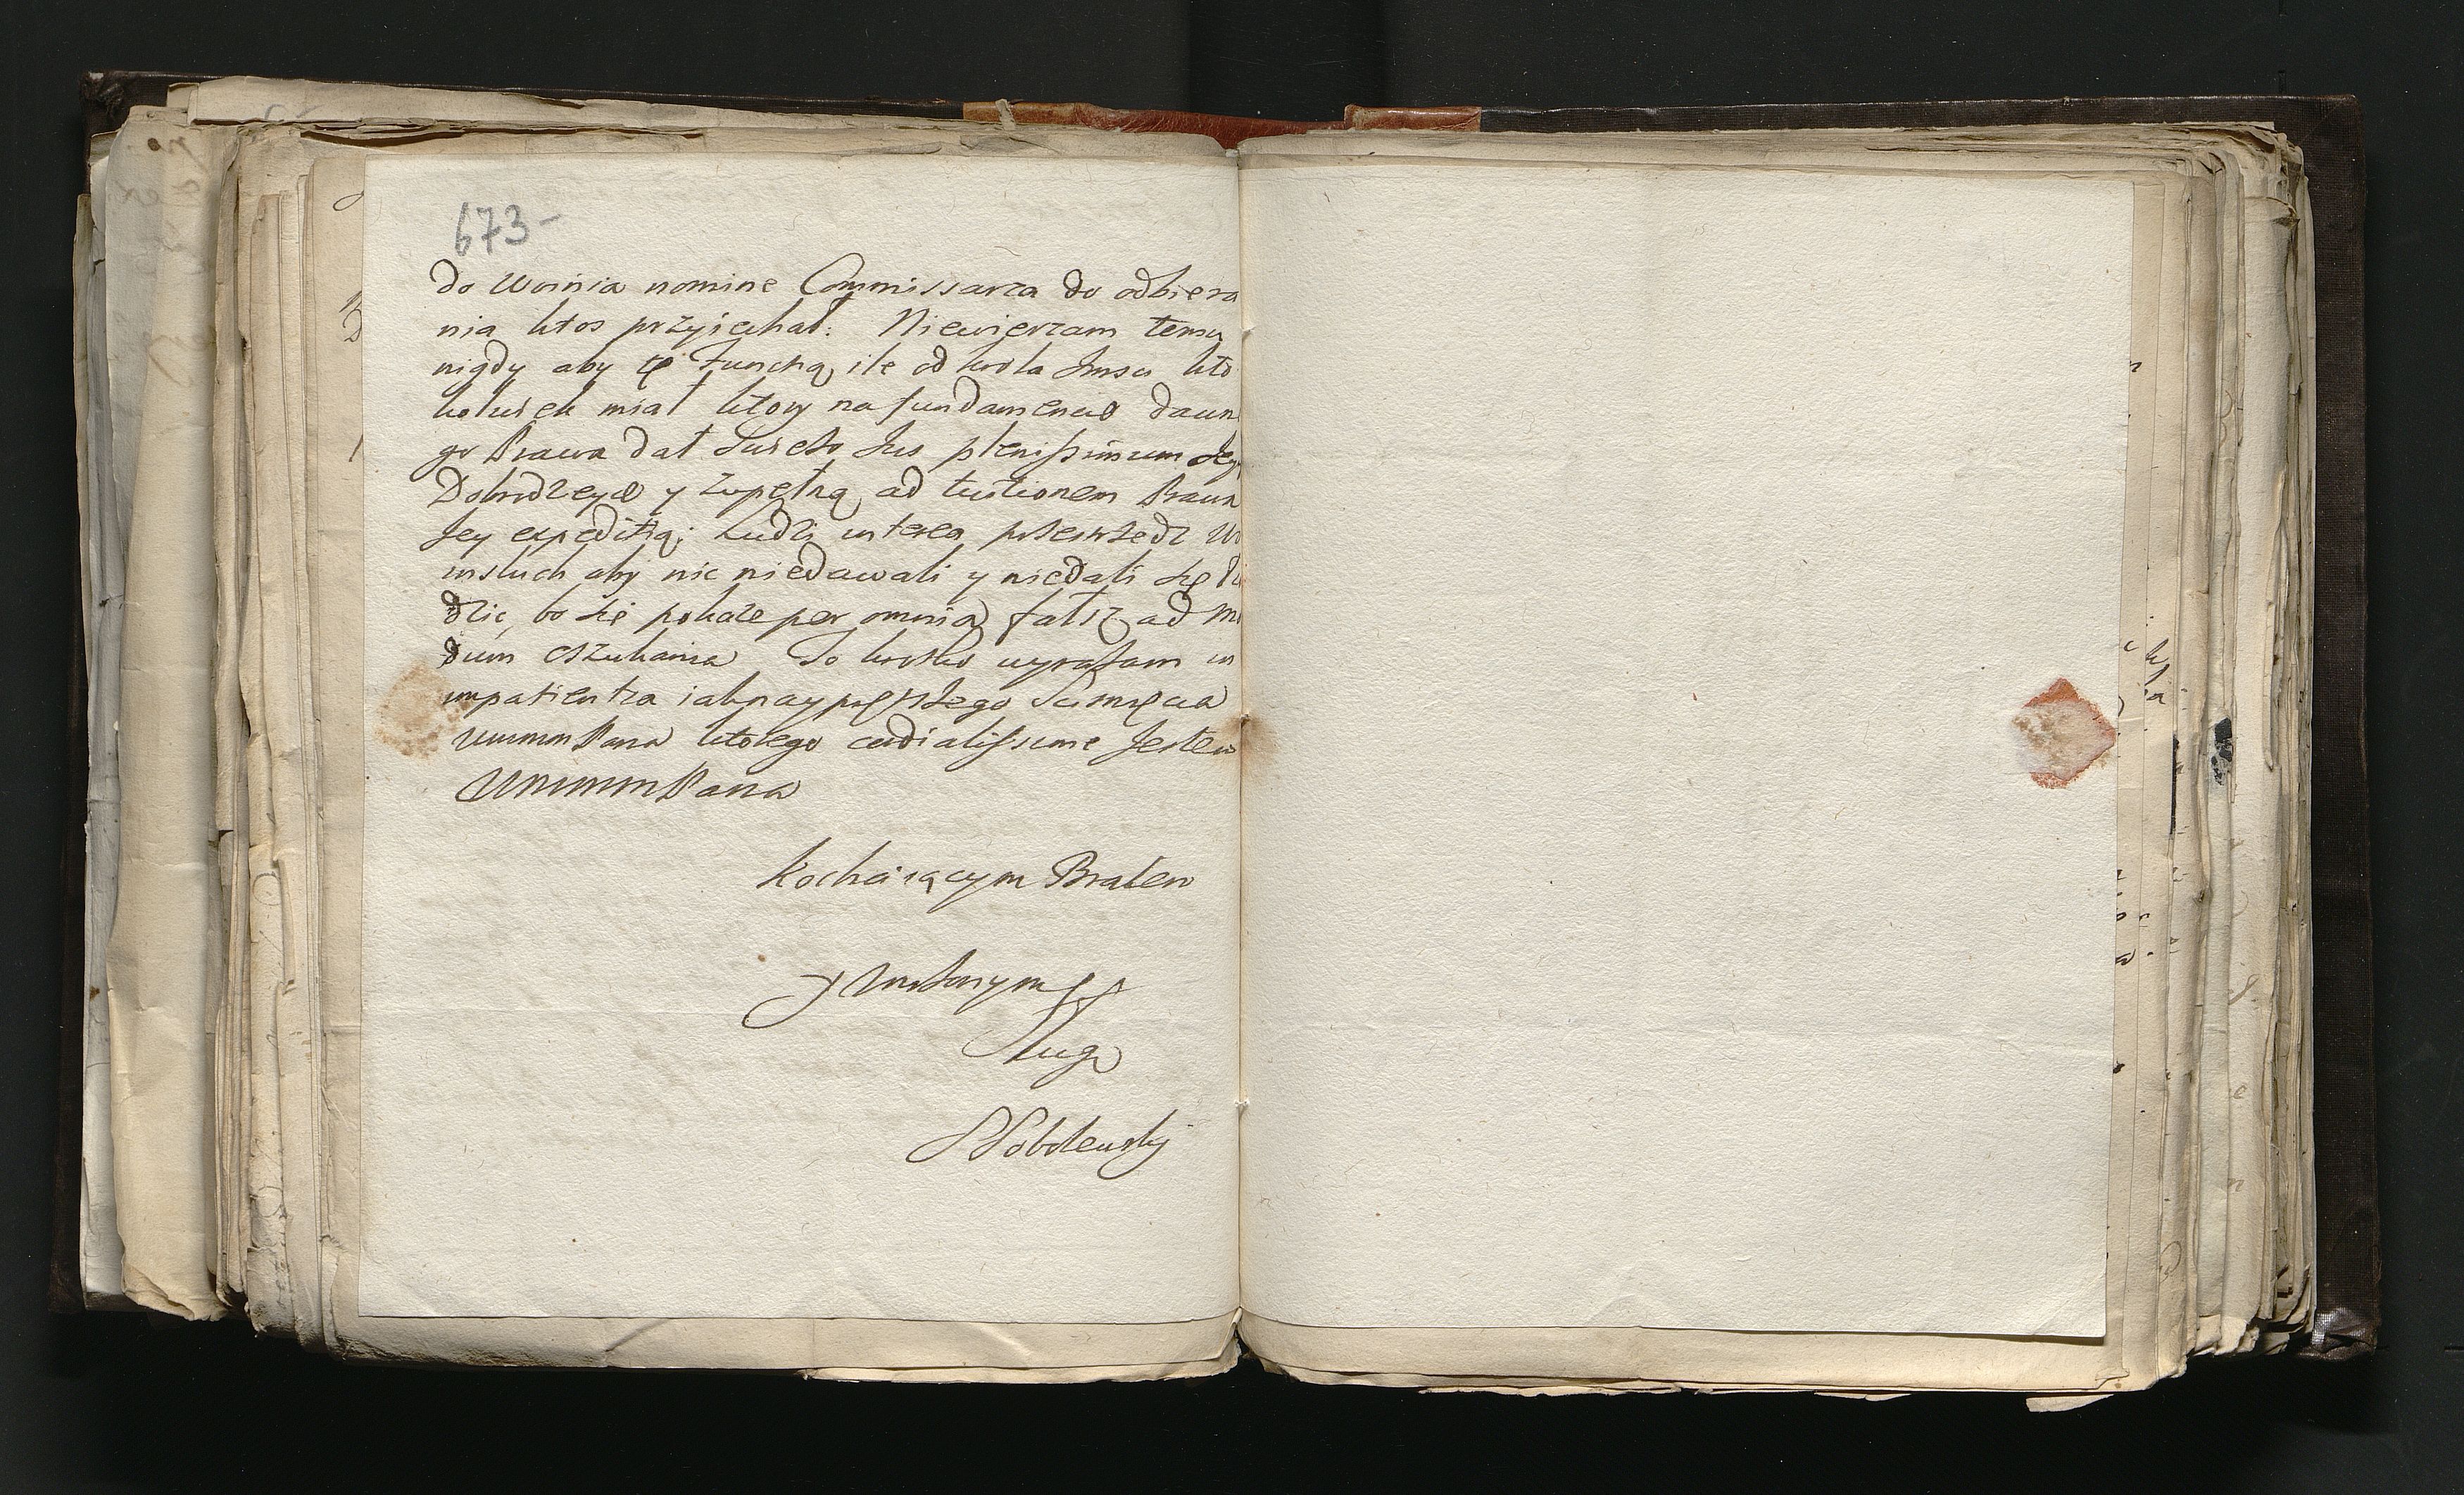 673-
do Woinia nomine Commissarza do odbiera
nia ktos przyiechał. Niewierzam temu
nigdy aby tę Funcką ile od krola Jmsci kto
kolwiek miał ktory na fundamencie dawn
go Prawa dał Swieżo Jus plenissimum Jey
Dobrodzeyce y zupełną ad tuitionem Prawa
Jey expeditią; Ludzi interea przestrzedz
aby nic niedawali y niedali się
dzic, bo się pokaże per omnia fałsz ad mo
dum oszukania To krotko wyrażam in
impatientia iaknayprętszego
WmmmPana ktorego cordialissime Jestem
WMMMMPana
Kochaiącym Bratem
y
Sługą
SSobolewsky